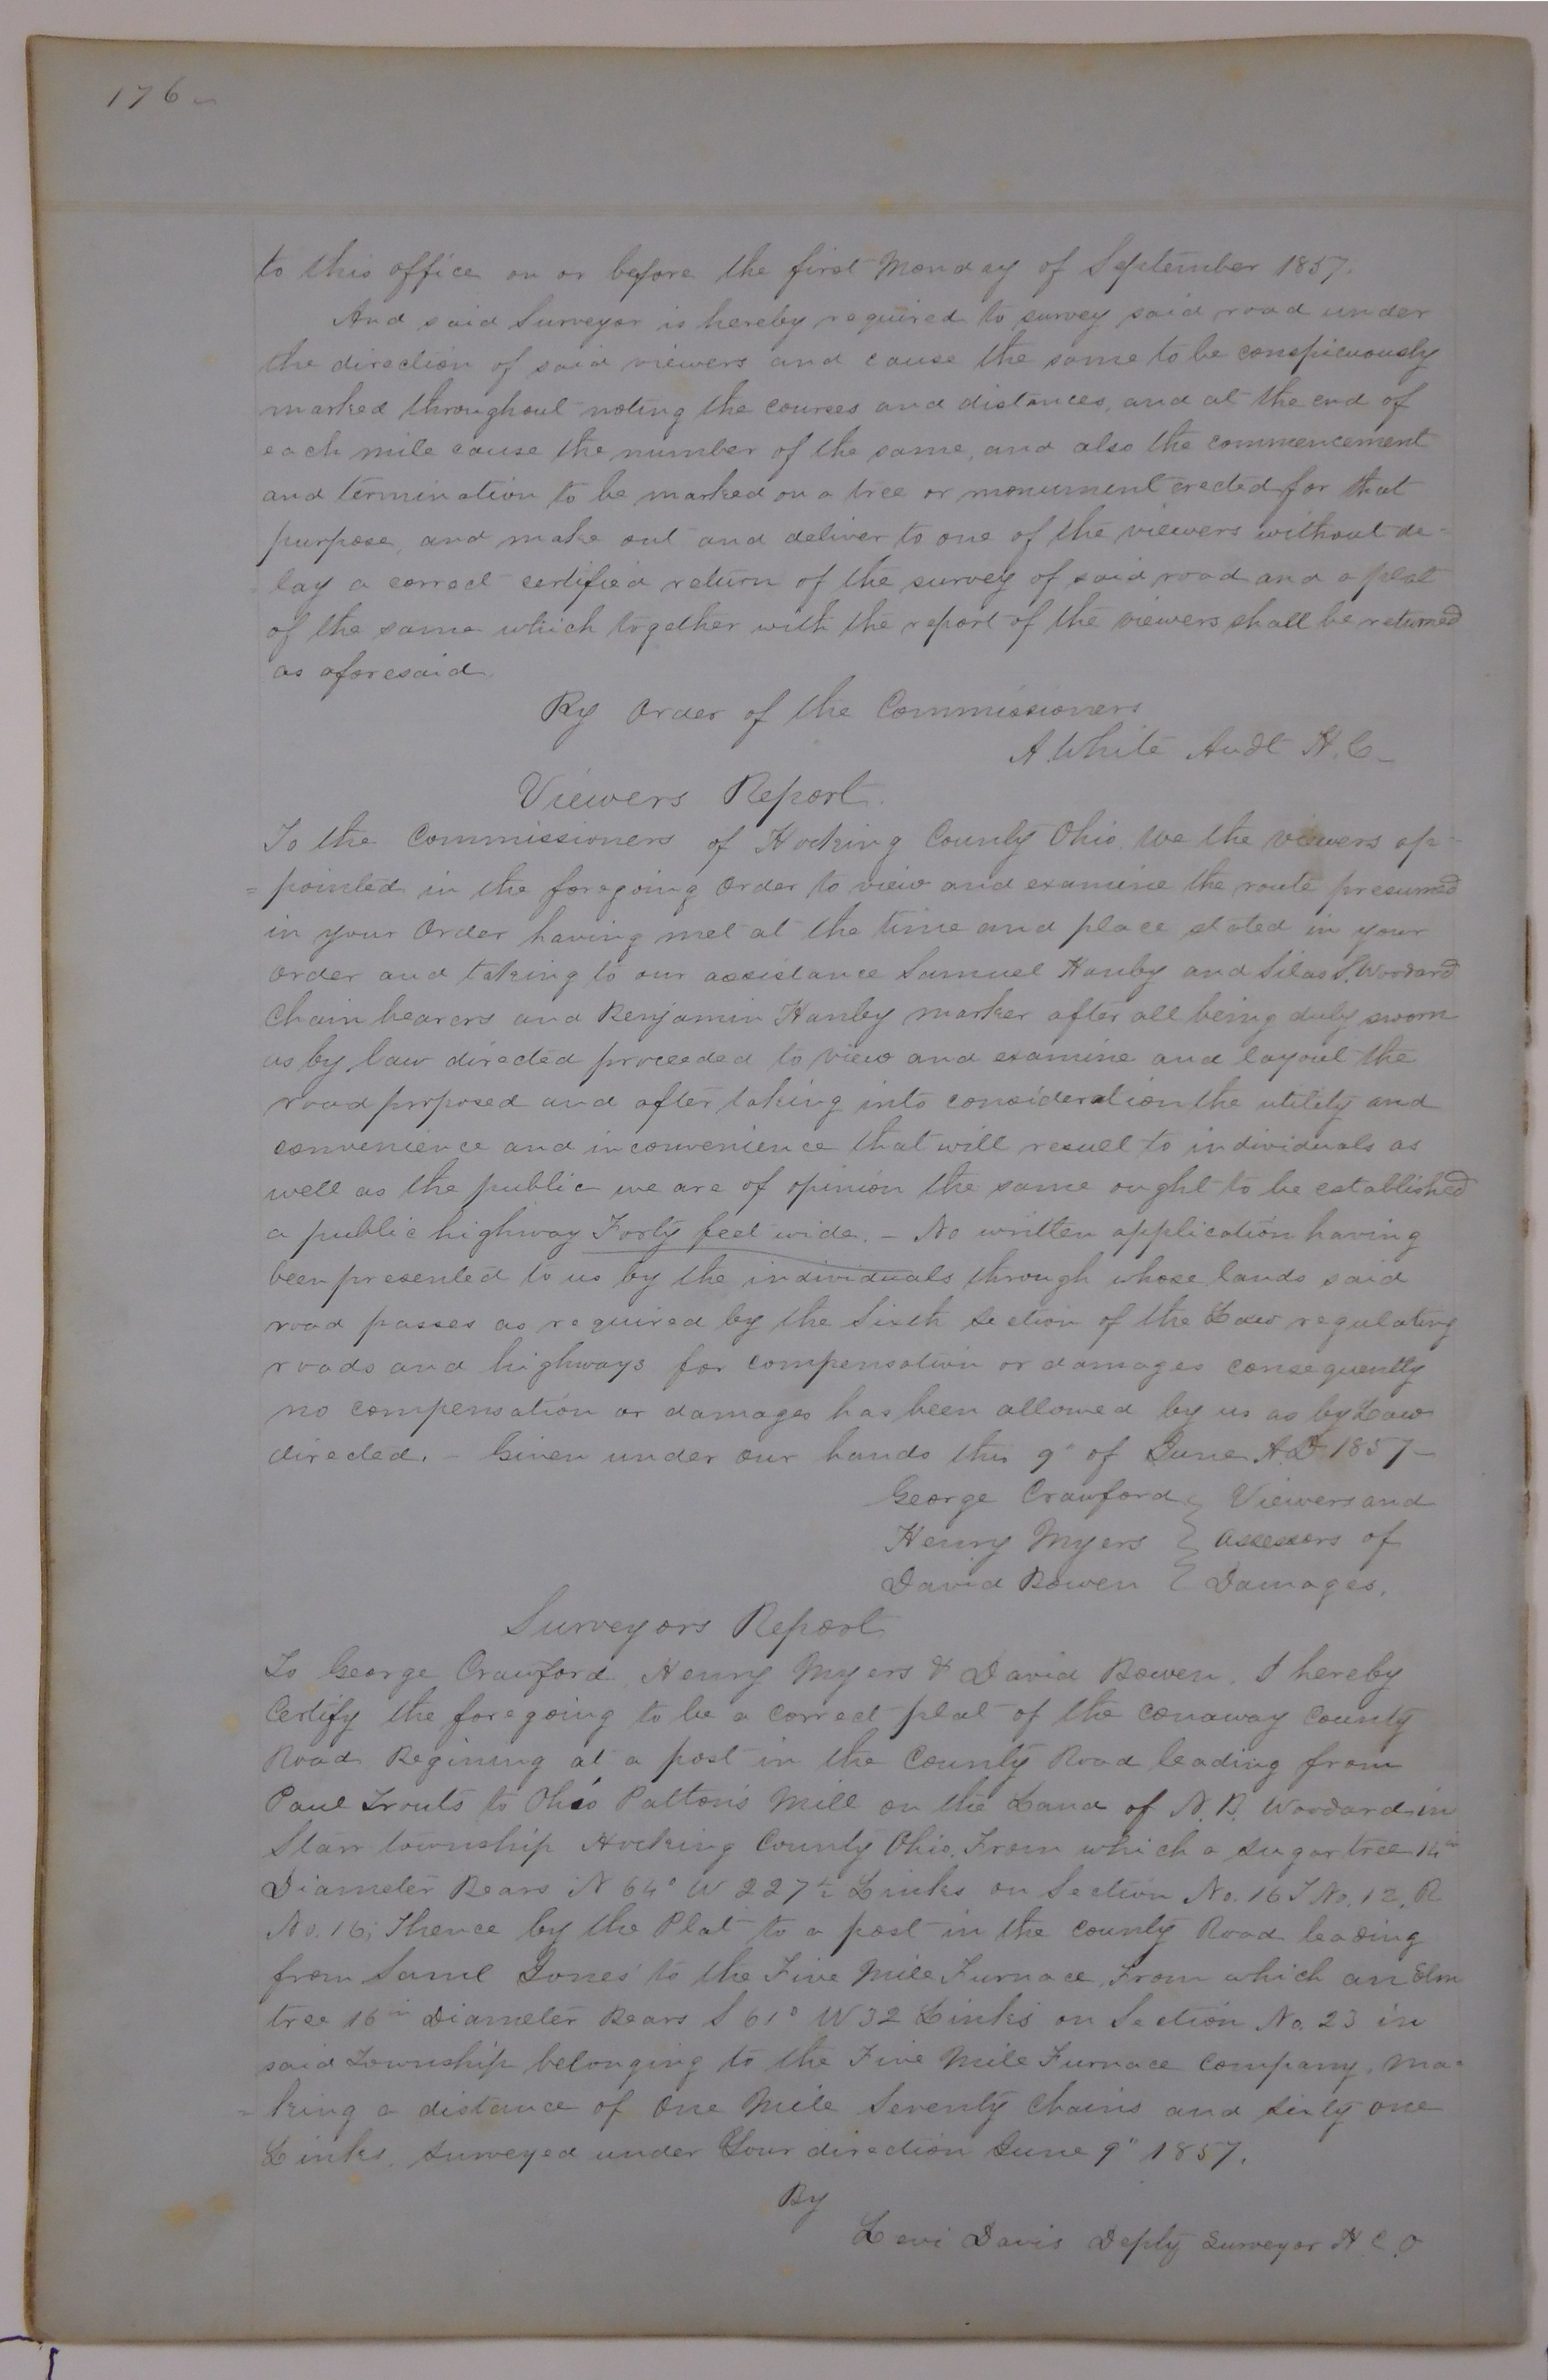 176
to this office on or before the first Monday of September 1857.
And said Surveyor is hereby required to survey said road under
the direction of said viewers and cause the same to be conspicuously
marked throughout noting the courses and distances, and at the end of
each mile cause the number of the same, and also the commencement
and termination to be marked on a tree or monument erected for that
purpose, and make out and deliver to one of the viewers without de-
lay a correct certified return of the survey of said road and a plat
of the same which together with the report of the viewers shall be returned
as aforesaid.
By Order of the Commissioners
A. White Audt H. C.
Viewers Report.
To the Commissioners of Hocking County Ohio. We the viewers ap-
=pointed in the foregoing Order to view and examine the route presumed
in your Order having met at the time and place stated in your
order and taking to our assistance Samuel Hanby and Silas S. Woodard
Chain bearers and Benjamin Hanby marker after all being duly sworn
as by law directed proceeded to view and examine and layout the
road proposed and after taking into consideration the utility and
convenience and inconvenience that will result to individuals as
well as the public we are of opinion the same ought to be established
a public highway Forty feet wide. - No written application having
been presented to us by the individuals through whose lands said
road passes as required by the Sixth Section of the Law regulating
roads and highways for compensation or damages consequently
no compensation or damages has been allowed by us as by Law
directed. - Given under our hands this 9" of June A.D 1857-
George Crawford } Viewers and
Henry Myers } assessors of
David Bowen } Damages.
Surveyors Report
To George Crawford, Henry Myers & David Bowen. I hereby
Certify the foregoing to be a correct plat of the Conaway County
Road Begining at a post in the County Road leading from
Paul Trouts to Ohio Patton's Mill on the Land of N. B. Woodard in
Starr township Hocking County Ohio. From which a sugar tree 14 in
Diameter Bears N 64° W 227½ Links on Section No. 16 T No. 12, R
No. 16; Thence by the Plat to a post in the County Road leading
from Saml Jones' to the Five Mile Furnace From which an Elm
tree 16 in Diameter Bears S 61° W 32 Links on Section No. 23 in
said Township belonging to the Five Mile Furnace Company, ma=
=king a distance of One Mile Seventy Chains and sixty one
Links. Surveyed under Your direction June 9" 1857.
By
Levi Davis Depty Surveyor H. C. O